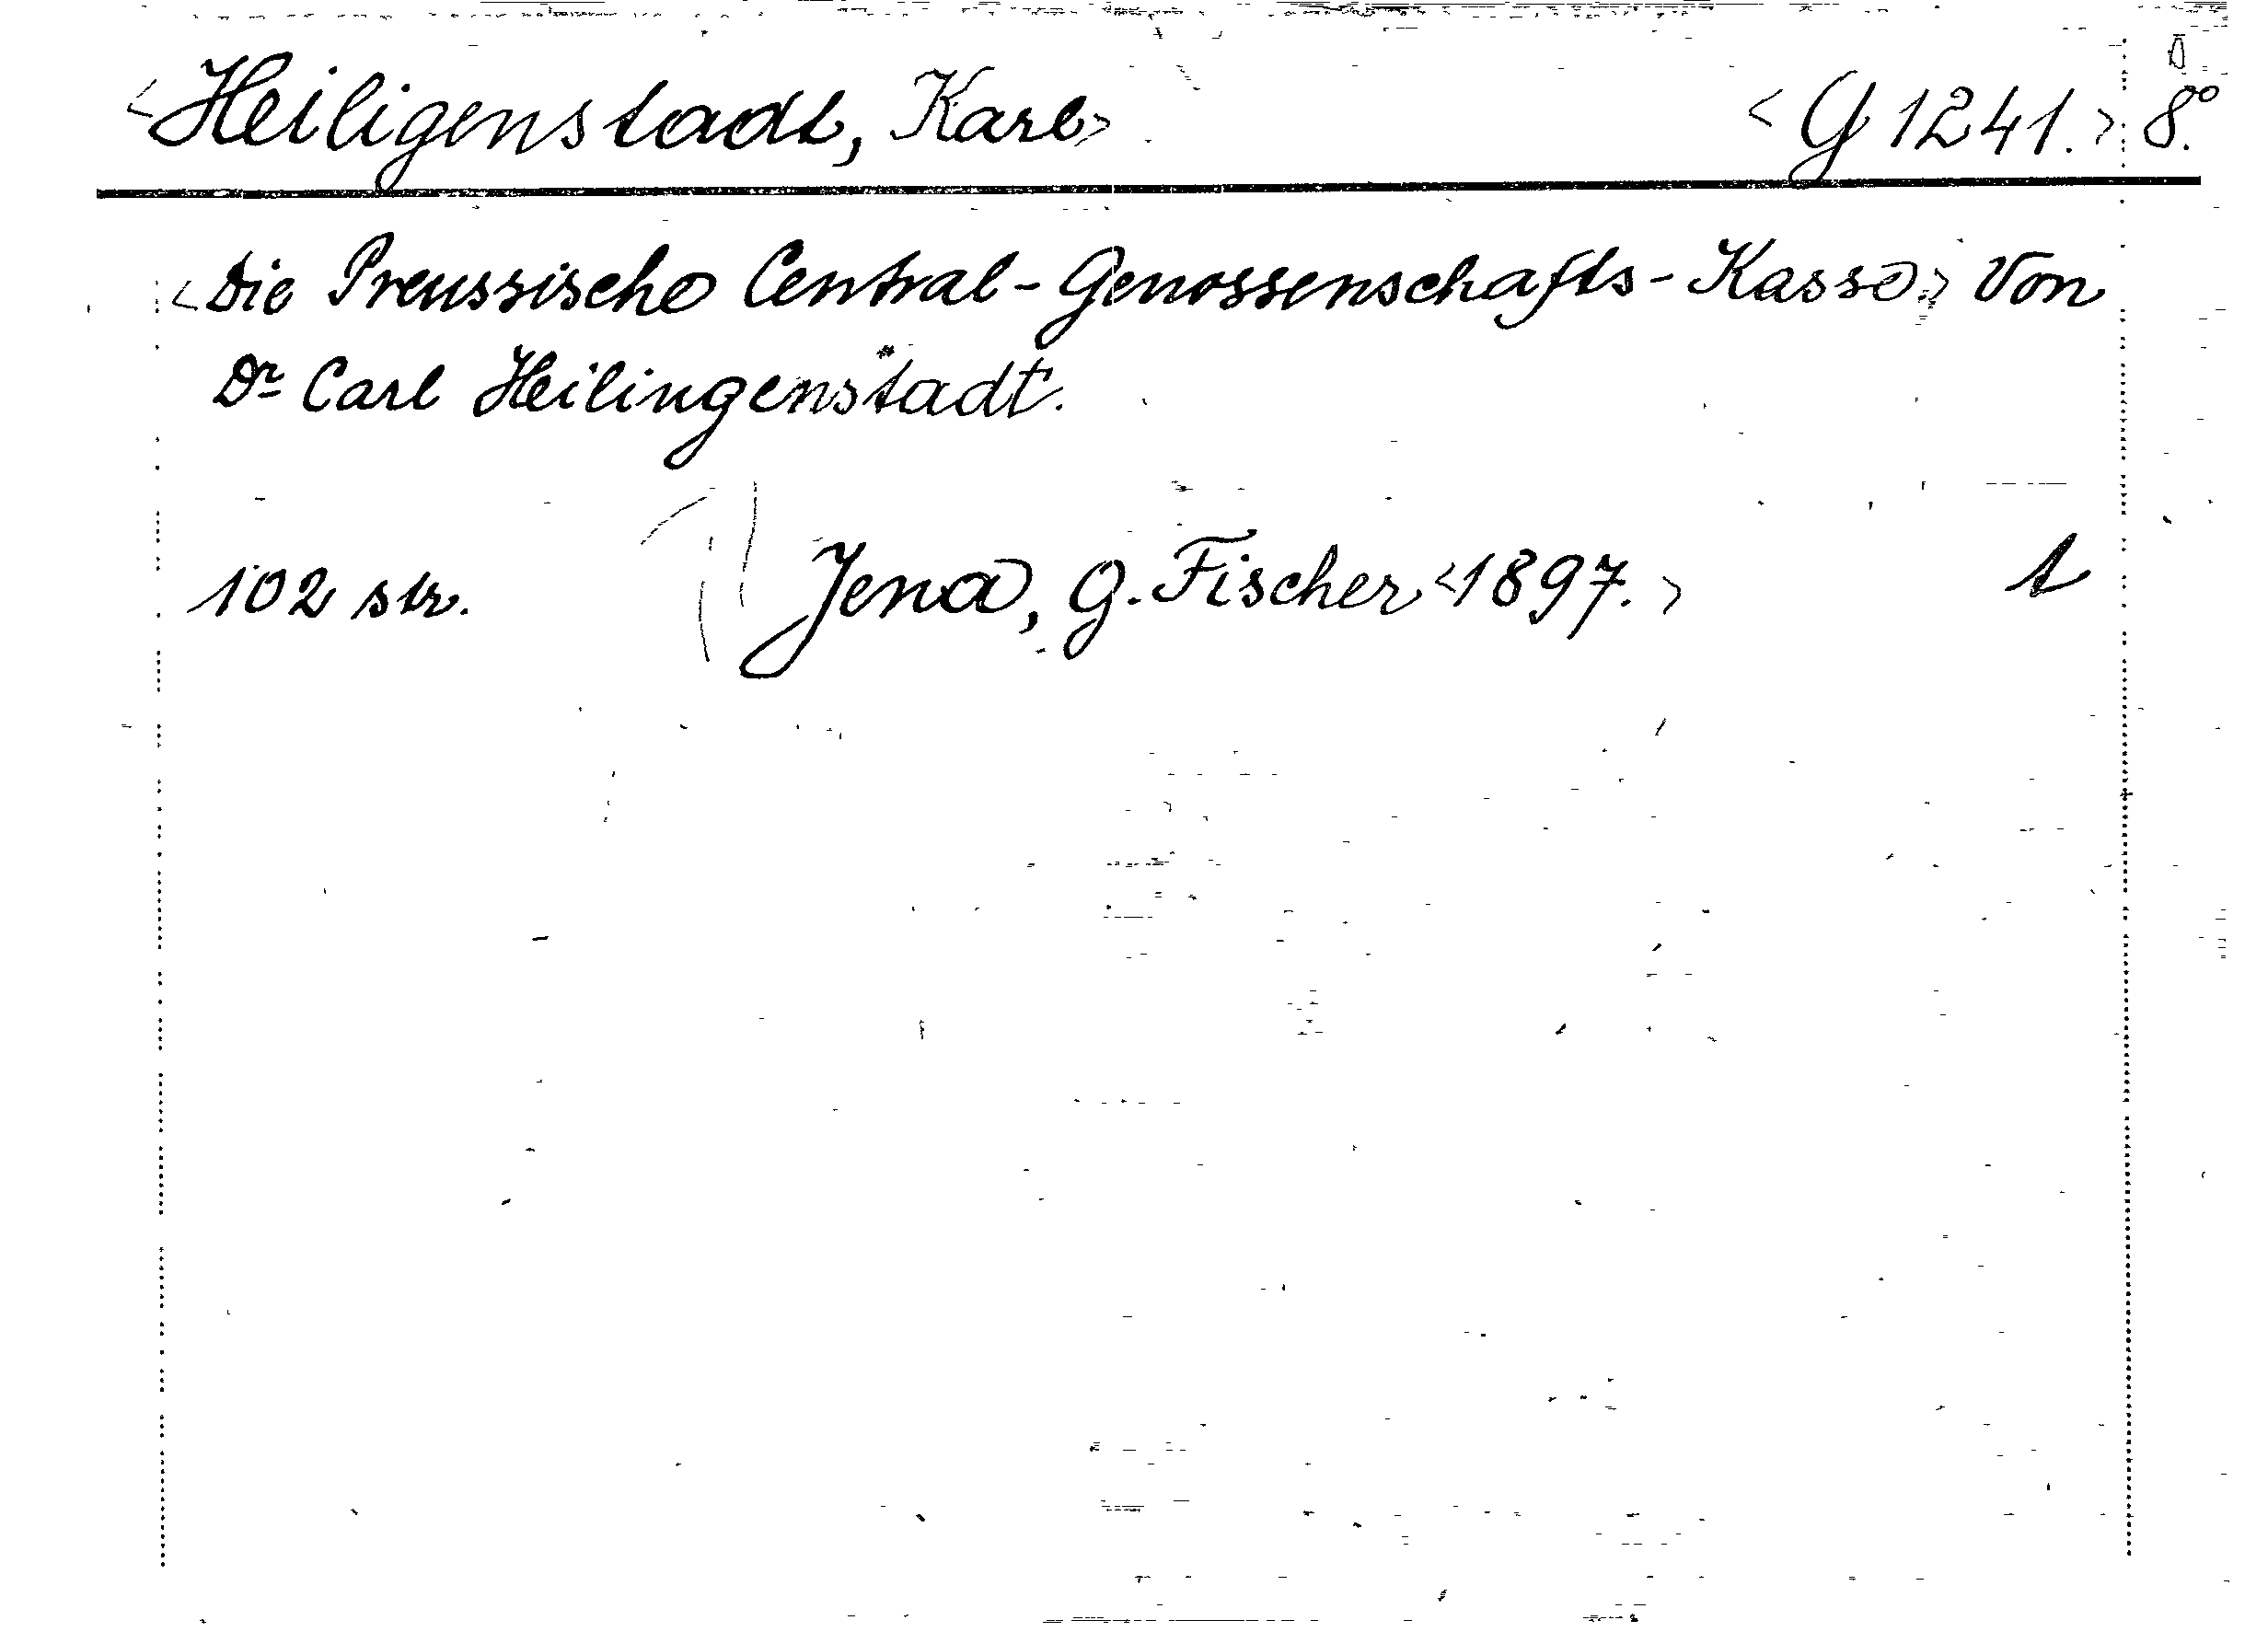 <Heiligenstadt, Karl> <G 1241.> 8°.
<Die Preussische Central-Genossenschafts-Kasse.> Von
Dr Carl Heilingenstadt.
102 str. Jena, G. Fischer <1897.> 1